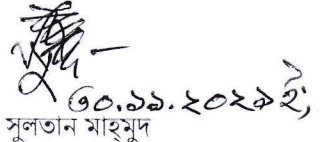 ৩০.১১.২০২১ ইং
সুলতান মাহমুদ